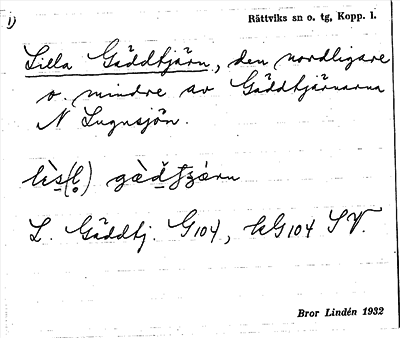 1) Rättviks sn o. tg, Kopp. l.
Lilla Gäddtjärn, den nordligare
o. mindre av Gäddtjärnarna
N Lugnsjön.
L. Gäddtj. G104, kG104 SV.
Bror Lindén 1932